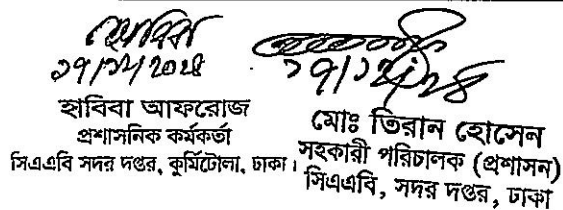 ১৭/১২/২০২৪
হাবিবা আফরোজ
প্রশাসনিক কর্মকর্তা
সিএএবি সদর দপ্তর, কুর্মিটোলা, ঢাকা।
১৭/১২/২৪
মোঃ তিরান হোসেন
সহকারী পরিচালক (প্রশাসন)
সিএএবি, সদর দপ্তর, ঢাকা